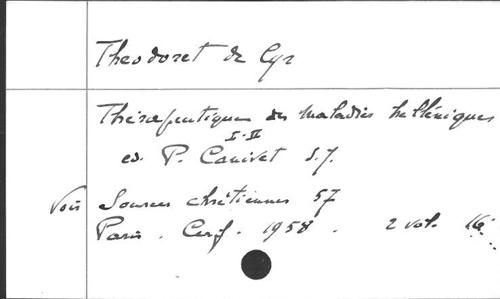 Theodoret de Cyr
Thérapeutique des maladies helléniques
I-II
ed. P. Canivet S.J.
Voir Sources chrétiennes 57
Paris. Cerf. 1958. 2 vol. 16°